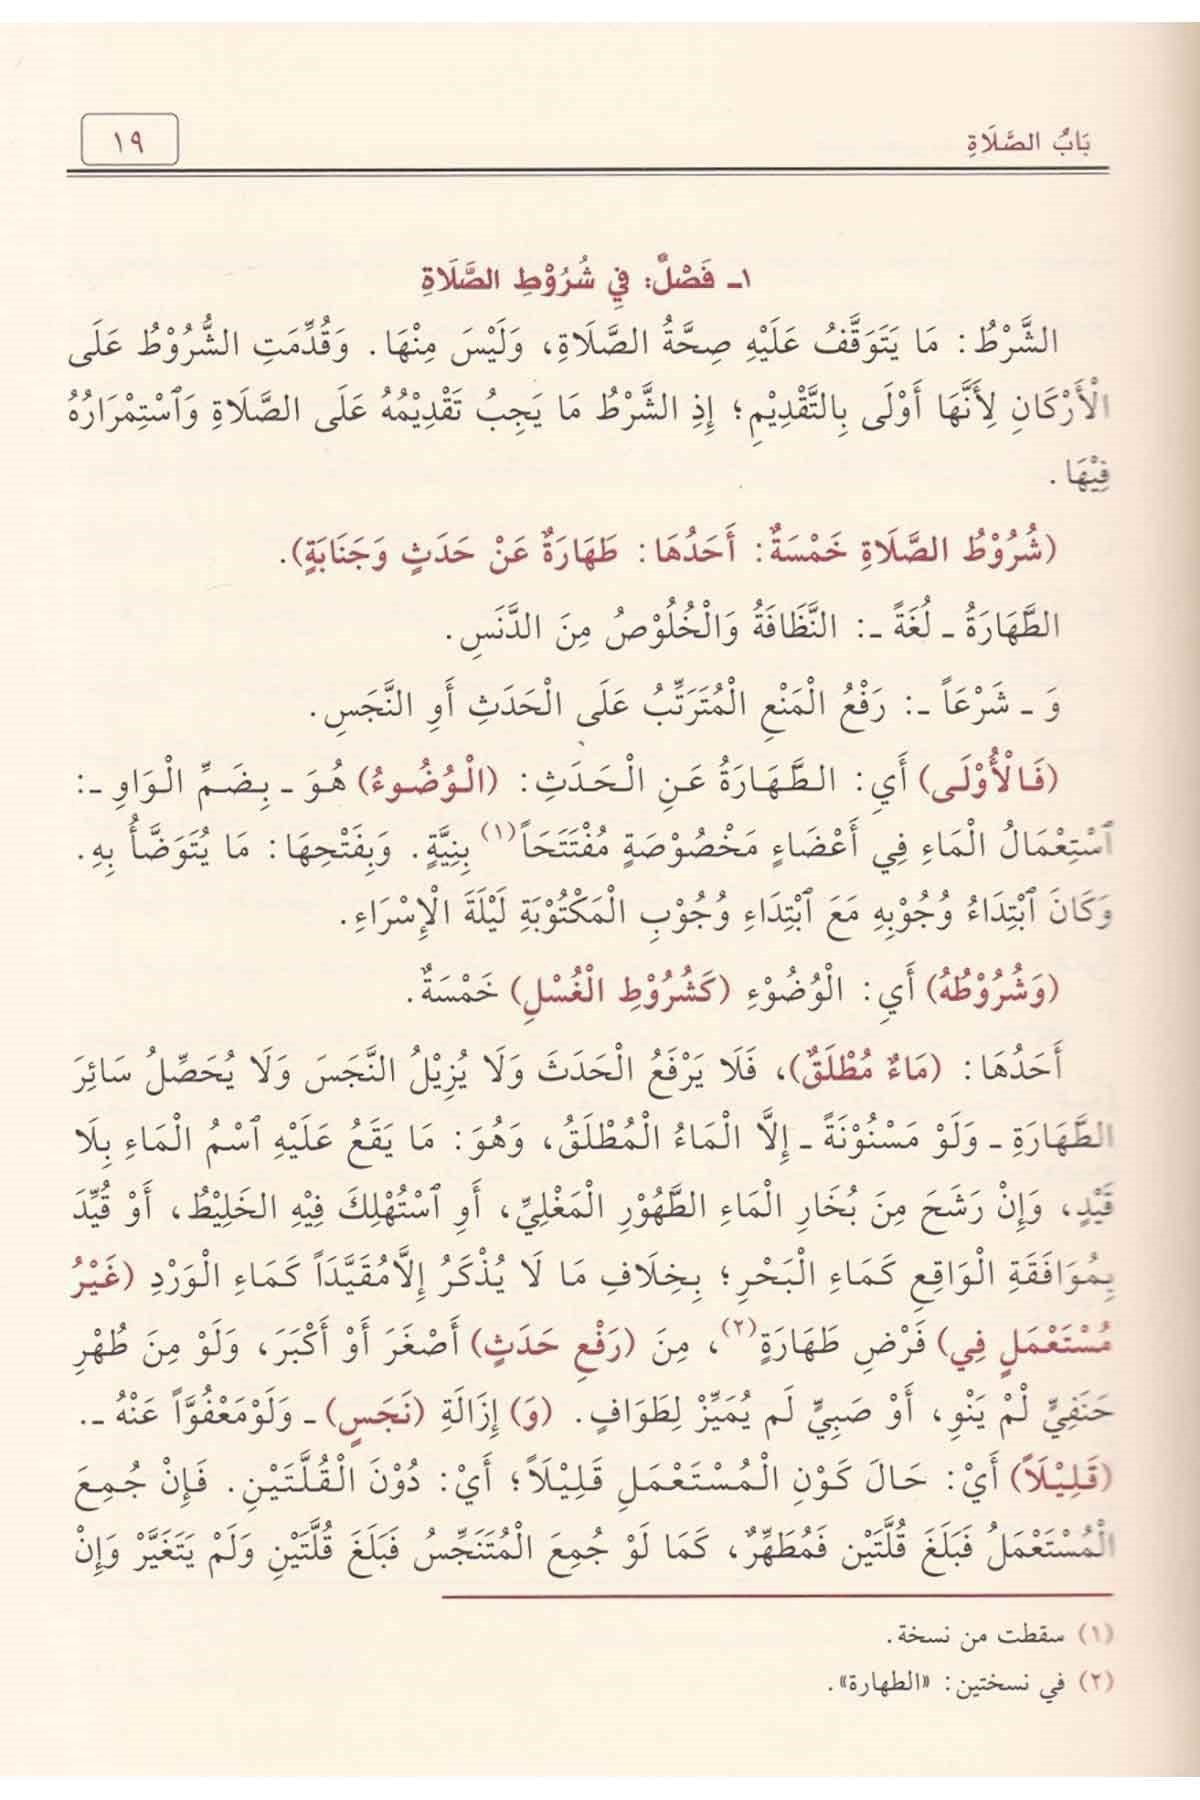 بَابُ الصَّلَاةِ
١٩
١ـ فَصْلٌ: فِي شُرُوْطِ الصَّلَاةِ
الشَّرْطُ: مَا يَتَوَقَّفُ عَلَيْهِ صِحَّةُ الصَّلَاةِ، وَلَيْسَ مِنْهَا. وَقُدِّمَتِ الشُّرُوْطُ عَلَى
الْأَرْكَانِ لِأَنَّهَا أَوْلَى بِالتَّقْدِيْمِ؛ إِذِ الشَّرْطُ مَا يَجِبُ تَقْدِيْمُهُ عَلَى الصَّلَاةِ وَٱسْتِمْرَارُهُ
فِيْهَا.
(شُرُوْطُ الصَّلَاةِ خَمْسَةٌ: أَحَدُهَا: طَهَارَةٌ عَنْ حَدَثٍ وَجَنَابَةٍ).
الطَّهَارَةُ ـ لُغَةً ـ: النَّظَافَةُ وَالْخُلُوْصُ مِنَ الدَّنَسِ.
وَ ـ شَرْعَاً ـ: رَفْعُ الْمَنْعِ الْمُتَرَتِّبُ عَلَى الْحَدَثِ أَوِ النَّجَسِ.
(فَالْأُوْلَى) أَيِ: الطَّهَارَةُ عَنِ الْحَدَثِ: (الْوُضُوءُ) هُوَ ـ بِضَمِّ الْوَاوِ ـ:
ٱسْتِعْمَالُ الْمَاءِ فِي أَعْضَاءٍ مَخْصُوْصَةٍ مُفْتَتَحَاً(١) بِنِيَّةٍ. وَبِفَتْحِهَا: مَا يُتَوَضَّأُ بِهِ.
وَكَانَ ٱبْتِدَاءُ وُجُوْبِهِ مَعَ ٱبْتِدَاءِ وُجُوْبِ الْمَكْتُوْبَةِ لَيْلَةَ الْإِسْرَاءِ.
(وَشُرُوْطُهُ) أَيِ: الْوُضُوْءِ (كَشُرُوْطِ الْغُسْلِ) خَمْسَةٌ.
أَحَدُهَا: (مَاءٌ مُطْلَقٌ)، فَلَا يَرْفَعُ الْحَدَثَ وَلَا يُزِيْلُ النَّجَسَ وَلَا يُحَصِّلُ سَائِرَ
الطَّهَارَةِ ـ وَلَوْ مَسْنُوْنَةً ـ إِلَّا الْمَاءُ الْمُطْلَقُ، وَهُوَ: مَا يَقَعُ عَلَيْهِ ٱسْمُ الْمَاءِ بِلَا
قَيْدٍ، وَإِنْ رَشَحَ مِنَ بُخَارِ الْمَاءِ الطَّهُوْرِ الْمَغْلِيِّ، أَوِ ٱسْتُهْلِكَ فِيْهِ الخَلِيْطُ، أَوْ قُيِّدَ
بِمُوَافَقَةِ الْوَاقِعِ كَمَاءِ الْبَحْرِ؛ بِخِلَافِ مَا لَا يُذْكَرُ إِلَّامُقَيَّدَاً كَمَاءِ الْوَرْدِ (غَيْرُ
مُسْتَعْمَلٍ فِي) فَرْضِ طَهَارَةٍ(٢)، مِنَ (رَفْعِ حَدَثٍ) أَصْغَرَ أَوْ أَكْبَرَ، وَلَوْ مِنَ طُهْرِ
حَنَفِيٍّ لَمْ يَنْوِ، أَوْ صَبِيٍّ لَم يُمَيِّزْ لِطَوَافٍ. (وَ) إِزَالَةِ (نَجَسٍ) ـ وَلَوْمَعْفُوَّاً عَنْهُ ـ.
(قَلِيْلَاً) أَيْ: حَالَ كَوْنِ الْمُسْتَعْمَلِ قَلِيْلَاً؛ أَيْ: دُوْنَ الْقُلَّتَيْنِ. فَإِنْ جُمِعَ
الْمُسْتَعْمَلُ فَبَلَغَ قُلَّتَيْنِ فَمُطَهِّرٌ، كَمَا لَوْ جُمِعَ الْمُتَنَجِّسُ فَبَلَغَ قُلَّتَيْنِ وَلَمْ يَتَغَيَّرْ وَإِنْ
(١) سقطت من نسخة.
(٢) في نسختين: «الطهارة».